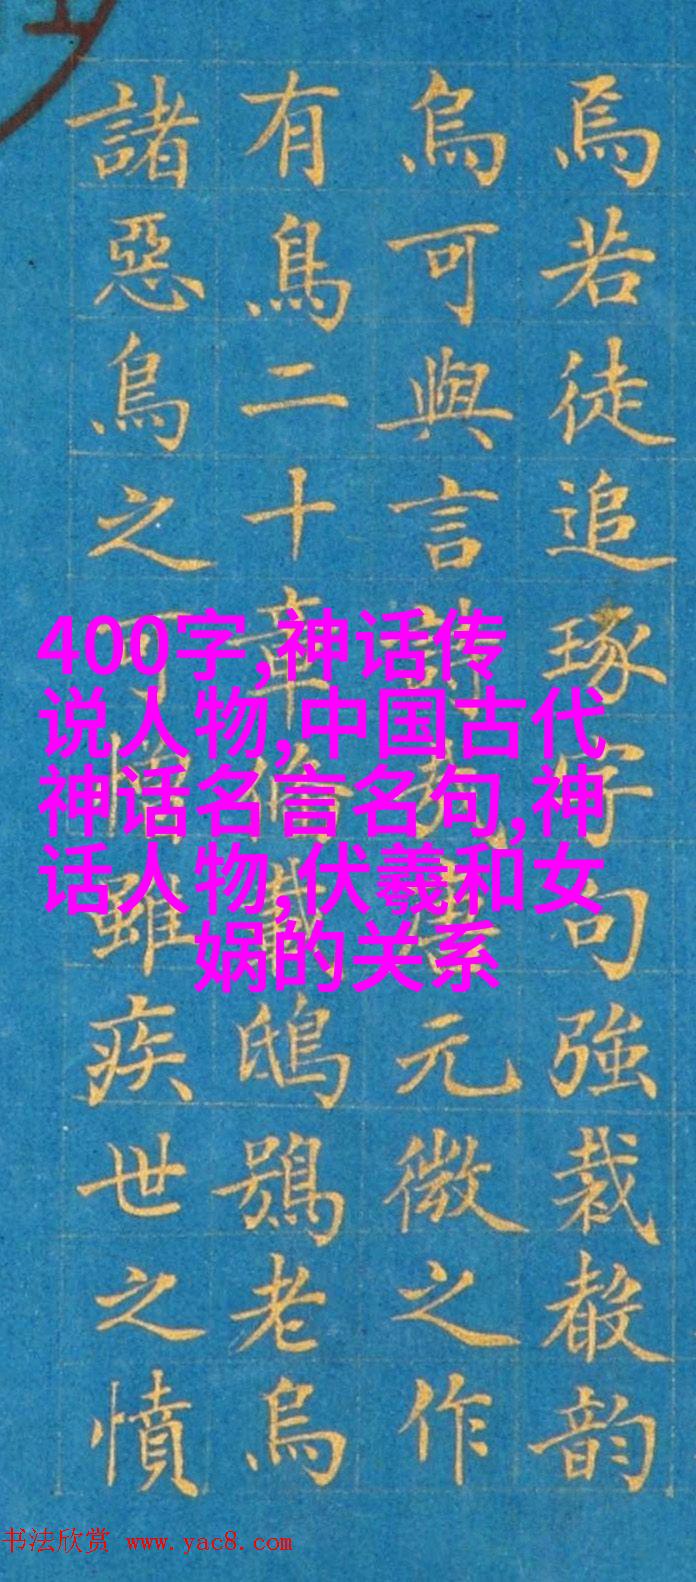 焉若徒追琢字句強裁韵
烏可與言詩教唐元微之作
有鳥二十章備載鴟鴞老烏
諸惡鳥之可憎雖疾世之憤
400字,神话传
说人物,中国古代
神话名言名句,神
话人物,伏羲和女
娲的关系
书法欣赏 www.yac8.com